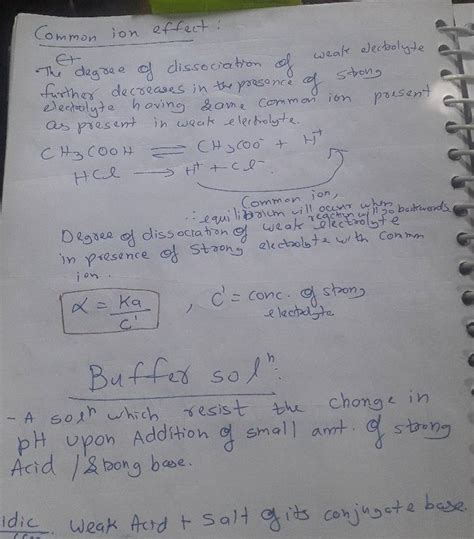 Common ion effect :
The degree of dissociation of weak electrolyte
further decreases in the presence of strong
electrolyte having same common ion present
as present in weak electrolyte.
CH3COOH ⇌ CH3COO⁻ + H⁺
HCl → H⁺ + Cl⁻
Common ion,
∴ equilibrium will occur when
reaction will go backwards
Degree of dissociation of weak electrolyte
in presence of strong electrolyte with common
ion.
α = Ka/C' , C' = conc. of strong
electrolyte
Buffer solⁿ:
- A solⁿ which resist the change in
pH upon Addition of small amt. of strong
Acid / strong base.
idic Weak Acid + Salt of its conjugate base.